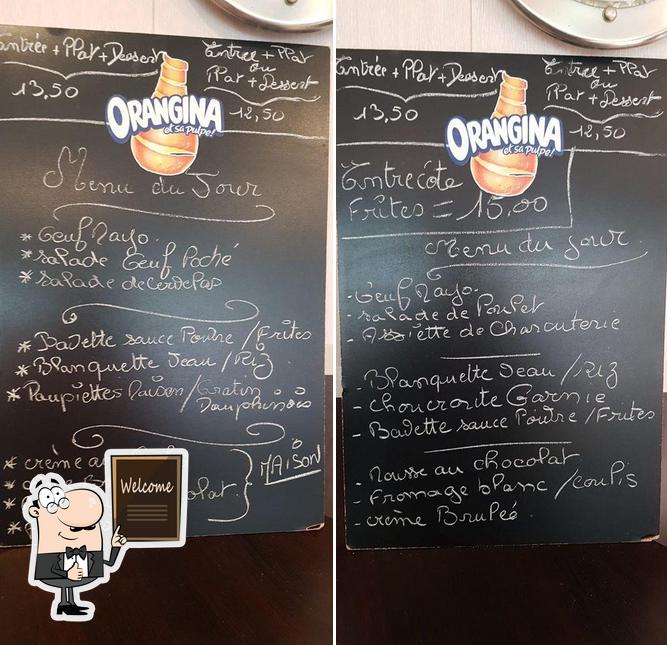 Entrée + Plat + Dessert
13,50
Entrée + Plat
ou
Plat + Dessert
12,50
ORANGINA
et sa pulpe!
Menu du Jour
* Oeuf Mayo.
* Salade Oeuf Poché
* Salade de Cervelas
* Bavette sauce Poivre / Frites
* Blanquette Veau / Riz
* Paupiettes Maison / Gratin
Dauphinois
* crème au
* olat.
MAISON
Welcome
Entrée + Plat + Dessert
13,50
Entree + Plat
ou
Plat + Dessert
12,50
ORANGINA
et sa pulpe!
Entrecôte
Frites = 15,00
Menu du Jour.
- Oeuf Mayo.
- Salade de Poulet
- Assiette de Charcuterie
- Blanquette Veau / Riz
- Choucroute Garnie
- Bavette sauce Poivre / Frites
- Mousse au chocolat
- Fromage blanc / coulis
- crème Brulée